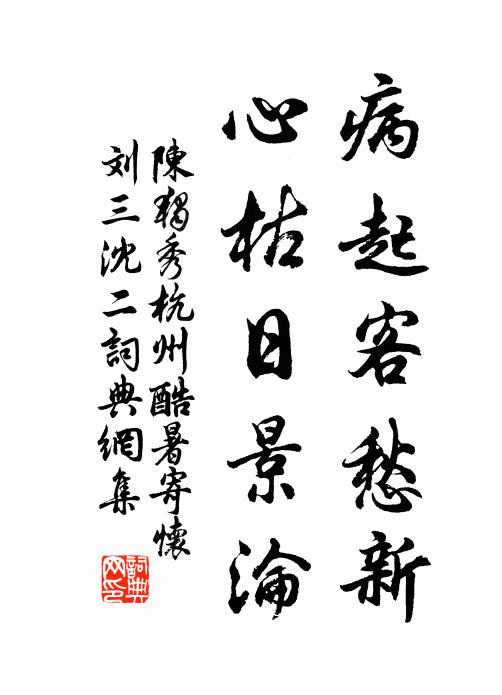 病起客愁新
心枯日景淪
陳獨秀杭州酷暑寄懷
刘三沈二詞典網集
詞典網印